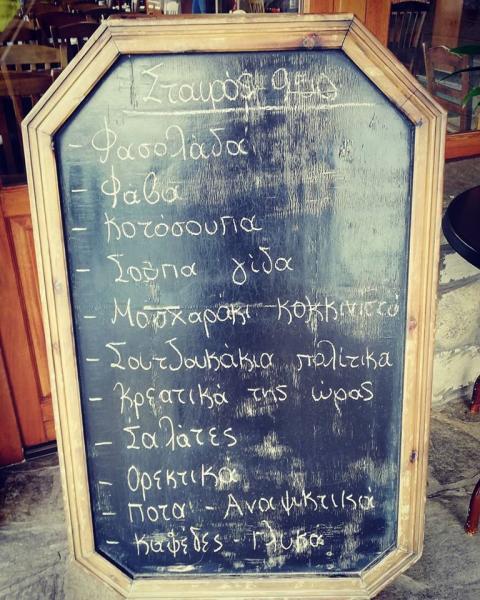 Σταυρός
- Φασολάδα
- Φάβα
- Κοτόσουπα
- Σούπα γίδα
- Μοσχαράκι κοκκινιστό
- Σουτζουκάκια πολίτικα
- Κρεατικά της ώρας
- Σαλάτες
- Ορεκτικά
- Ποτά - Αναψυκτικά
- Καφέδες - Γλυκά